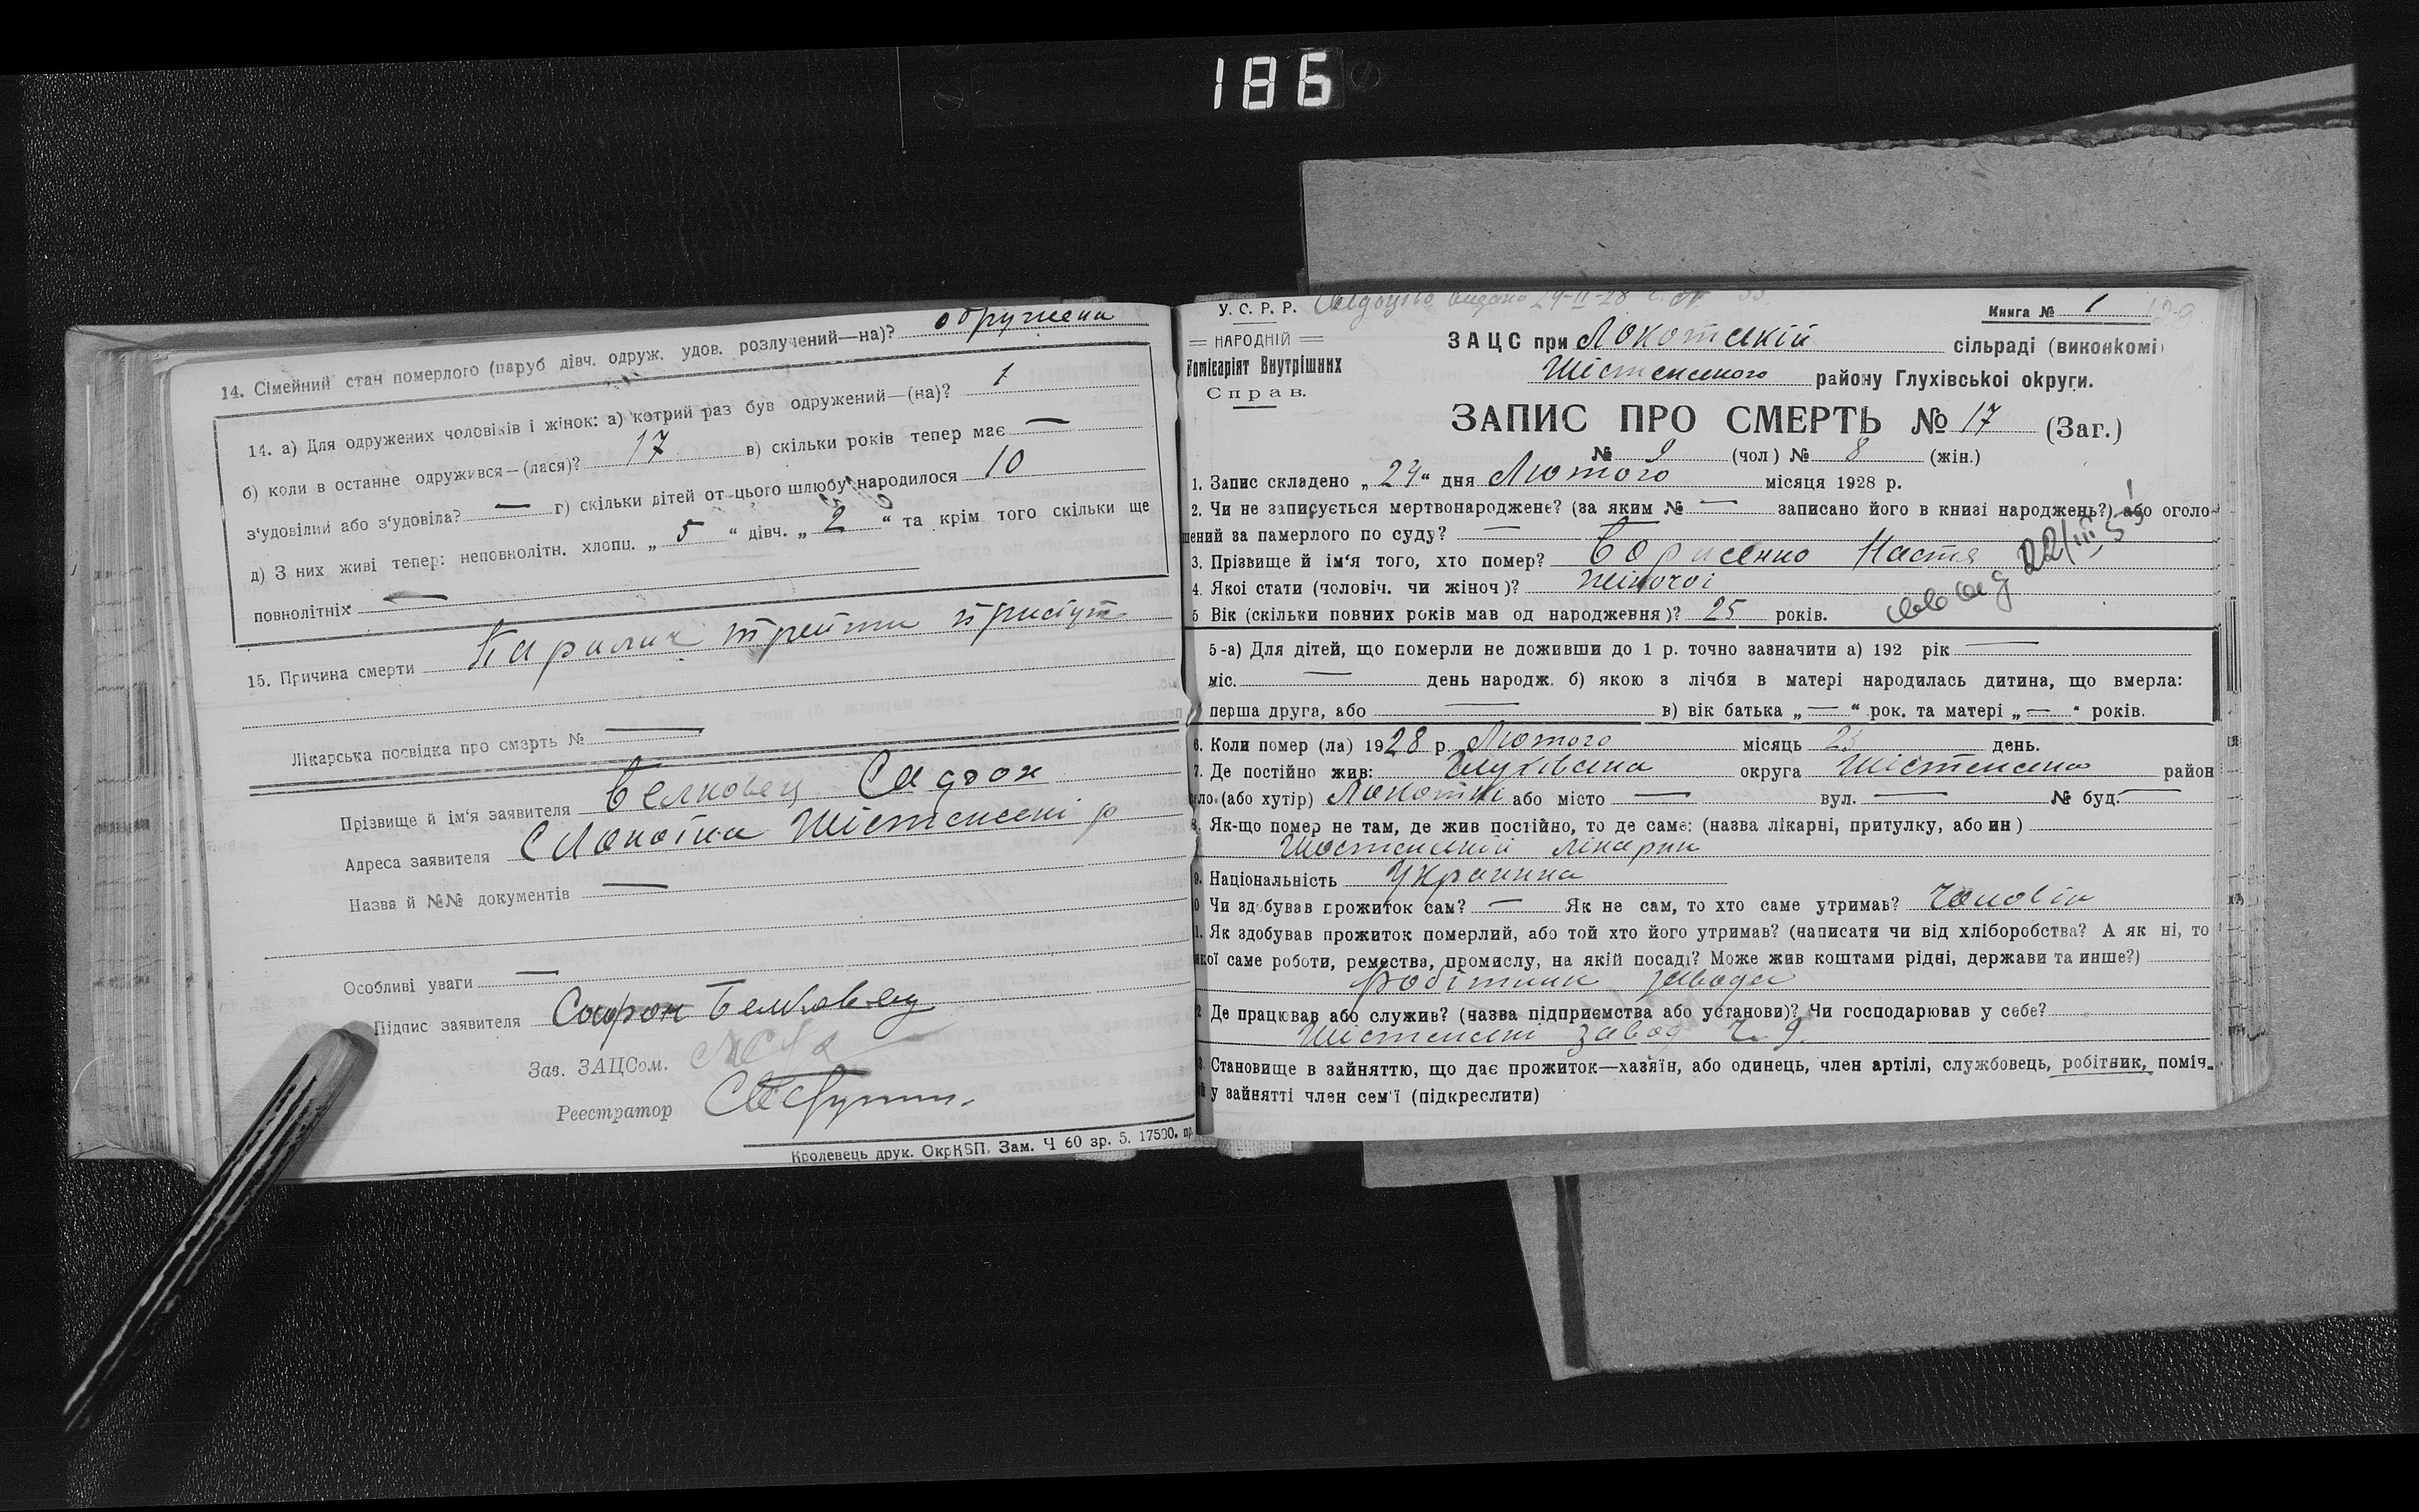 186
14. Сімейний стан померлого (паруб дівч. одруж. удов. розлучений—на)? одружена
14. а) Для одружених чоловіків і жінок: а) котрий раз був одружений—(на)? 1
б) коли в останнє одружився—(лася)? 17 в) скільки років тепер має —
з'удовілий або з'удовіла? — г) скільки дітей от цього шлюбу народилося 10
д) З них живі тепер: неповнолітн. хлопц. „ 5 “ дівч. „ 2 “ та крім того скільки ще
повнолітніх —
15. Причина смерти
Лікарська посвідка про смерть № —
Прізвище й ім'я заявителя Белковец Сафрон
Адреса заявителя С Локотка Шістенскі р
Назва й №№ документів —
Особливі уваги —
Підпис заявителя Сафрон Белковец
Зав. ЗАЦСом.
Реестратор
Кролевець друк. ОкрКВП. Зам. Ч 60 зр. 5. 17500. пр
У. С. Р. Р. видано 24-II-28
Книга № 1
НАРОДНІЙ
Комісаріят Внутрішних
Справ.
ЗАЦС при Локотській сільраді (виконкомі)
Шістенського району Глухівської округи.
ЗАПИС ПРО СМЕРТЬ № 17 (Заг.)
№ 9 (чол) № 8 (жін.)
1. Запис складено „ 24 “ дня Лютого місяця 1928 р.
2. Чи не записується мертвонароджене? (за яким № — записано його в книзі народжень?) або оголо-
шений за памерлого по суду? —
3. Прізвище й ім'я того, хто помер? Борисенко Настя
4. Якої стати (чоловіч. чи жіноч)? жіночоі
5 Вік (скільки повних років мав од народження)? 25 років.
5-а) Для дітей, що померли не доживши до 1 р. точно зазначити а) 192 рік —
міс. — день народж. б) якою з лічби в матері народилась дитина, що вмерла:
перша друга, або — в) вік батька „ — “ рок. та матері „ — “ років.
6. Коли помер (ла) 1928 р. Лютого місяць 23 день.
7. Де постійно жив: Глухівська округа Шістенська район
ло (або хутір) Локотки або місто — вул. — № буд. —
Як-що помер не там, де жив постійно, то де саме: (назва лікарні, притулку, або ин)
Шостенській лікарни
9. Національність Украинка
Чи здобував прожиток сам? — Як не сам, то хто саме утримав? Чоловік
1. Як здобував прожиток померлий, або той хто його утримав? (написати чи від хліборобства? А як ні, то
якої саме роботи, ремества, промислу, на якій посаді? Може жив коштами рідні, держави та инше?)
робітник завода
2 Де працював або служив? (назва підприємства або установи)? Чи господарював у себе?
Шістенскі завод Ч. 9.
Становище в зайняттю, що дає прожиток—хазяїн, або одинець, член артілі, службовець, робітник, поміч-
й у зайнятті член сем'ї (підкреслити)